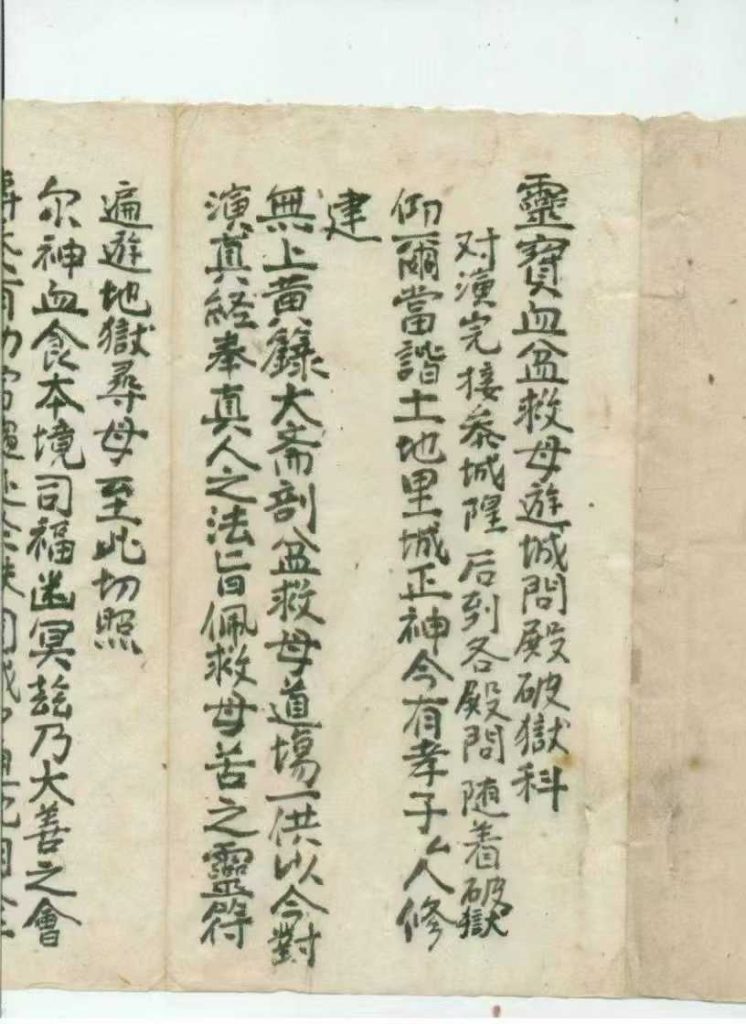 靈寶血盆救母遊城問殿破獄科
对演完接叅城隍后到各殿問随着破獄
仰爾當諧土地里城正神今有孝子厶人修
建
無上黄籙大斋剖盆救母道塲一供以今對
演真経奉真人之法旨佩救母苦之靈符
遍遊地獄尋母至此切照
尔神血食本境司福幽冥兹乃大善之會